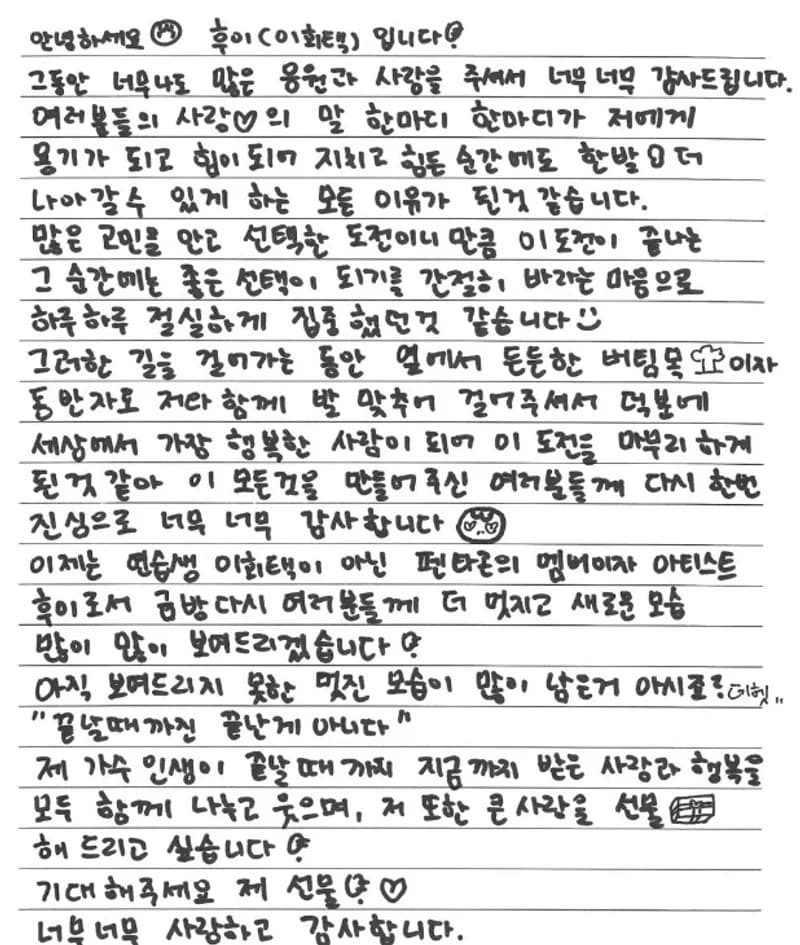 안녕하세요 후이(이회택) 입니다!
그동안 너무나도 많은 응원과 사랑을 주셔서 너무 너무 감사드립니다.
여러분들의 사랑♡의 말 한마디 한마디가 저에게
용기가 되고 힘이 되어 지치고 힘든 순간에도 한발 더
나아갈 수 있게 하는 모든 이유가 된것 같습니다.
많은 고민을 안고 선택한 도전이니 만큼 이 도전이 끝나는
그 순간에는 좋은 선택이 되기를 간절히 바라는 마음으로
하루하루 절실하게 집중했던것 같습니다
그러한 길을 걸어가는 동안 옆에서 든든한 버팀목 이자
동반자로 저와 함께 발 맞추어 걸어주셔서 덕분에
세상에서 가장 행복한 사람이 되어 이 도전을 마무리 하게
된것 같아 이 모든것을 만들어주신 여러분들께 다시 한번
진심으로 너무 너무 감사합니다
이제는 연습생 이회택이 아닌 펜타곤의 멤버이자 아티스트
후이로서 금방 다시 여러분들께 더 멋지고 새로운 모습
많이 많이 보여드리겠습니다!
아직 보여드리지 못한 멋진 모습이 많이 남은거 아시죠?
"끝날때까진 끝난게 아니다"
제 가수 인생이 끝날 때 까지 지금까지 받은 사랑과 행복을
모두 함께 나누고 웃으며, 저 또한 큰 사랑을 선물
해 드리고 싶습니다!
기대해주세요 제 선물! ♡
너무너무 사랑하고 감사합니다.